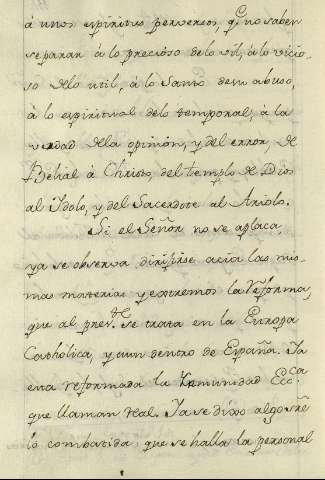 á unos espiritus perversos, q.e no saben
separar á lo precioso de lo vil, á lo vicio-
so dlo util, á lo Santo de su abuso,
á lo espiritual delo temporal, á la
verdad dla opinión, y del error, de
Belial á Christo, del templo de Dios
al Idolo, y del Sacerdote al Ariolo.
Si el Señor no se aplaca,
ya se observa dirijirse acia las mis-
mas materias y extremos la Reforma,
que al pres.te se trata en la Europa
Catholica, y aun dentro de España. Ya
esta reformada la Ymunidad Ecc.ca
que llaman real. Ya se dixo algo sre
lo combatida que se halla la personal